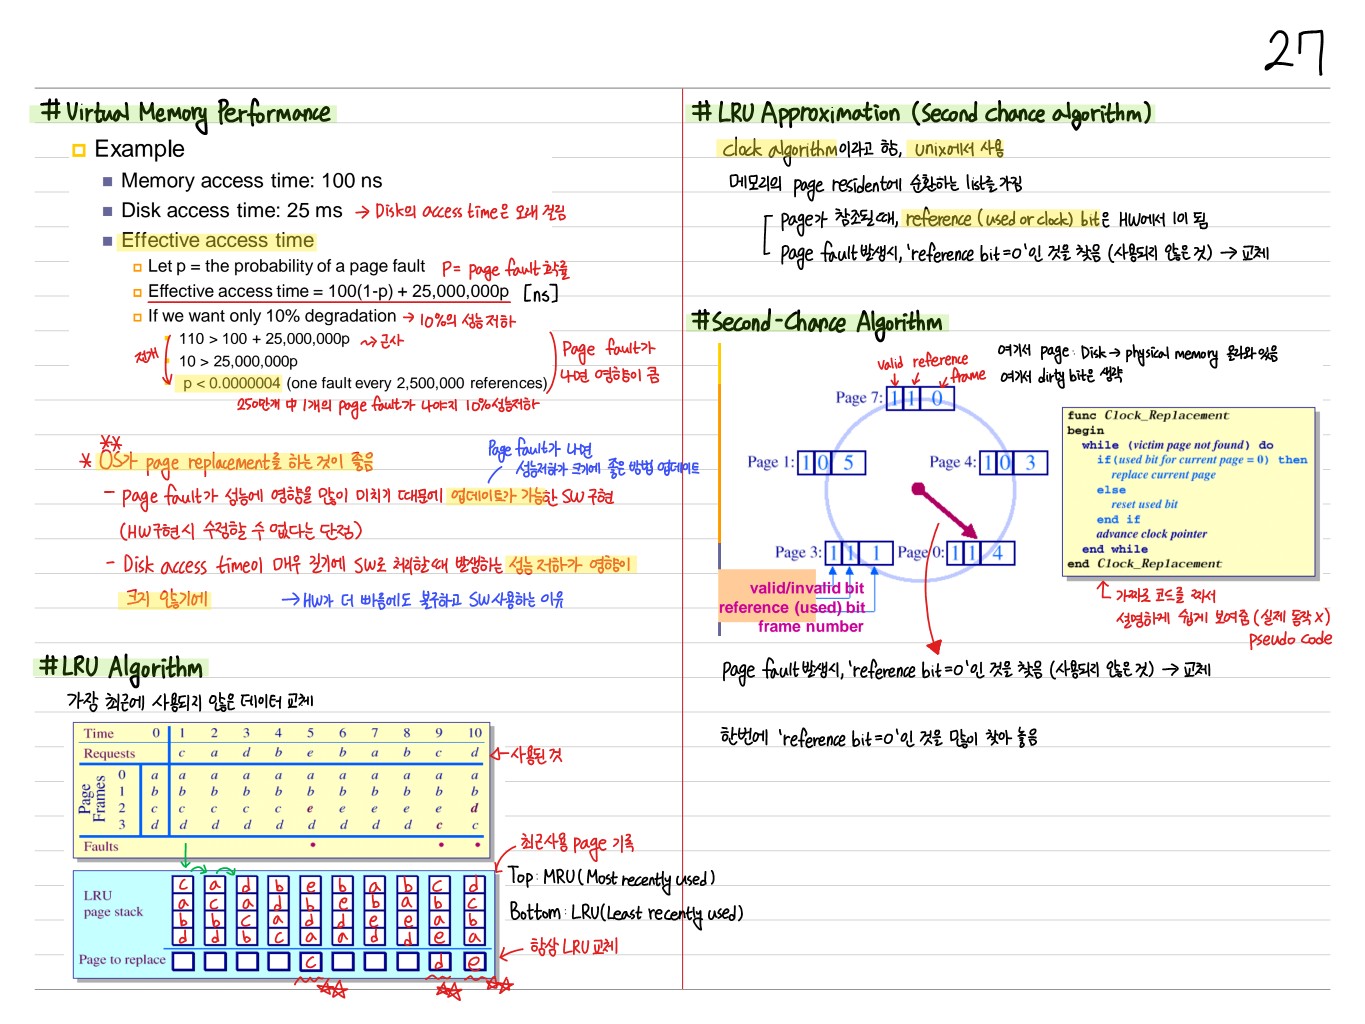 27
# Virtual Memory Performance
Example
Memory access time: 100 ns
Disk access time: 25 ms → Disk의 access time은 오래 걸림
Effective access time
Let p = the probability of a page fault P= page fault 확률
Effective access time = 100(1-p) + 25,000,000p [ns]
If we want only 10% degradation → 10%의 성능저하
110 > 100 + 25,000,000p ~> 근사
전개
10 > 25,000,000p
p < 0.0000004 (one fault every 2,500,000 references)
Page fault가
나면 영향이 큼
250만개 中 1개의 page fault가 나야지 10%성능저하
** 
* OS가 page replacement를 하는 것이 좋음
Page fault가 나면
성능저하가 크기에 좋은 방법 업데이트
- Page fault가 성능에 영향을 많이 미치기 때문에 업데이트가 가능한 SW 구현
(HW구현시 수정할 수 없다는 단점)
- Disk access time이 매우 길기에 SW로 처리할 때 발생하는 성능 저하가 영향이
크지 않기에 → HW가 더 빠름에도 불구하고 SW사용하는 이유
# LRU Algorithm
가장 최근에 사용되지 않은 데이터 교체
Time 0 1 2 3 4 5 6 7 8 9 10
Requests c a d b e b a b c d ← 사용된 것
Page Frames
0 a a a a a a a a a a a
1 b b b b b b b b b b b
2 c c c c c e e e e e d
3 d d d d d d d d d c c
Faults • • •
최근사용 page 기록
LRU
page stack
c a d b e b a b c d
a c a d b e b a b c
b b c a d d e e a b
d d b c a a d d e a
Top: MRU (Most recently used)
Bottom: LRU (Least recently used)
Page to replace c d e ← 항상 LRU 교체
# LRU Approximation (Second chance algorithm)
clock algorithm이라고 함, unix에서 사용
메모리의 page resident에 순환하는 list를 가짐
Page가 참조될 때, reference (used or clock) bit은 HW에서 1이 됨
Page fault 발생시, 'reference bit=0'인 것을 찾음 (사용되지 않은 것) → 교체
# Second-Chance Algorithm
여기서 page : Disk → physical memory 올라와 있음
여기서 dirty bit은 생략
valid reference
frame
Page 7: 1 1 0
Page 1: 1 0 5
Page 4: 1 0 3
Page 3: 1 1 1
Page 0: 1 1 4
valid/invalid bit
reference (used) bit
frame number
func Clock_Replacement
begin
while (victim page not found) do
if(used bit for current page = 0) then
replace current page
else
reset used bit
end if
advance clock pointer
end while
end Clock_Replacement
가짜로 코드를 짜서
설명하게 쉽게 보여줌 (실제 동작 X)
pseudo code
Page fault 발생시, 'reference bit=0'인 것을 찾음 (사용되지 않은 것) → 교체
한번에 'reference bit=0'인 것을 많이 찾아 놓음